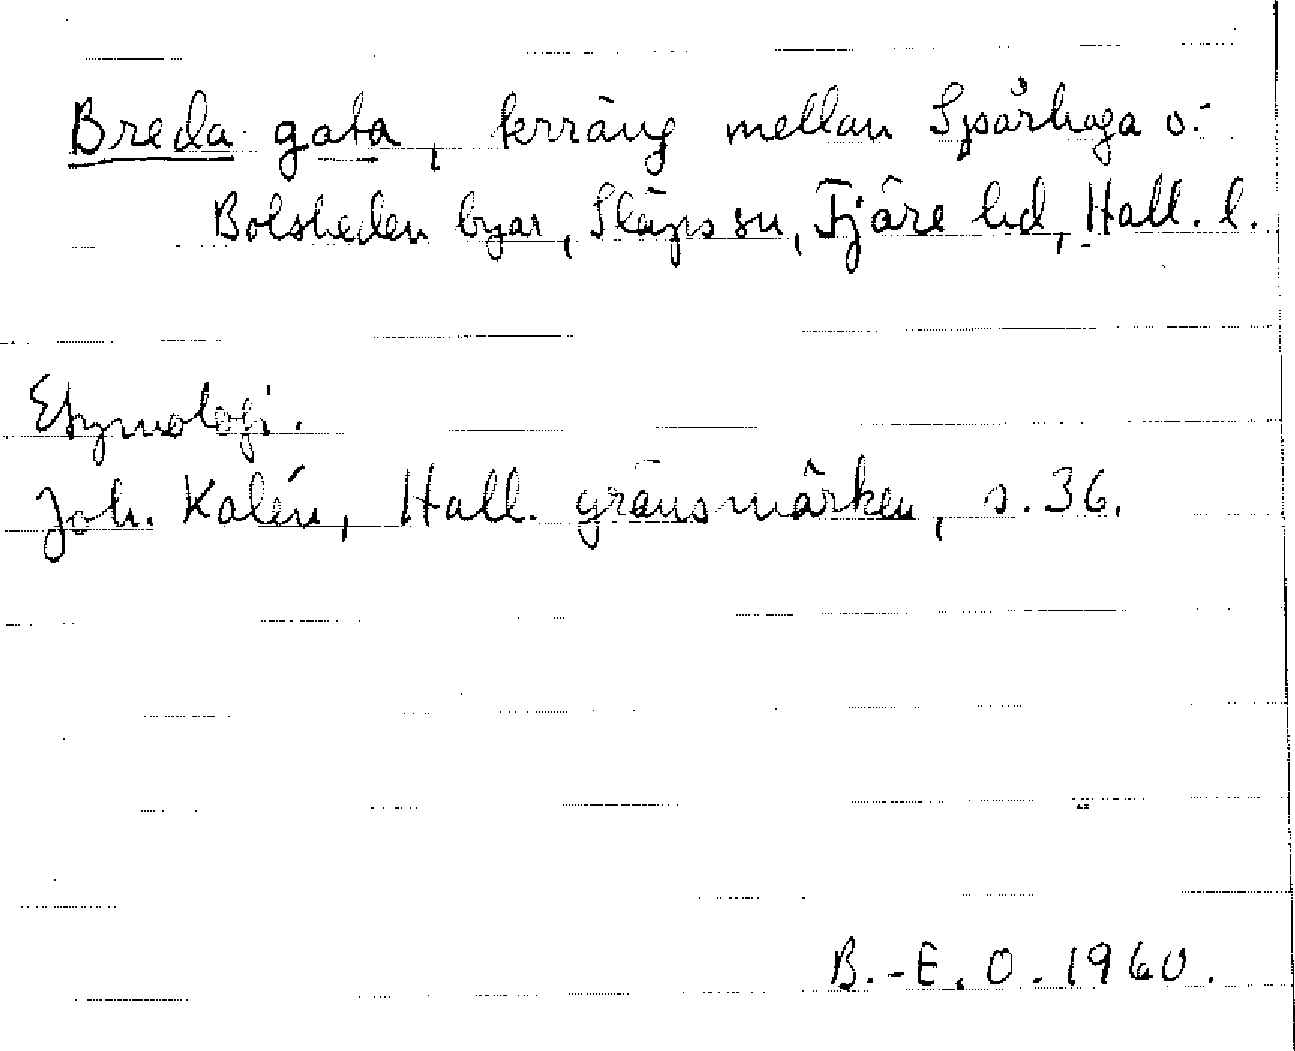 Breda gata, terräng mellan Spårhaga o.
Bolsheden byar, Släps sn, Fjäre hd, Hall. l.
Etymologi.
Joh. Kalén, Hall. gränsmärken, s. 36.
B.-E. O. 1960.